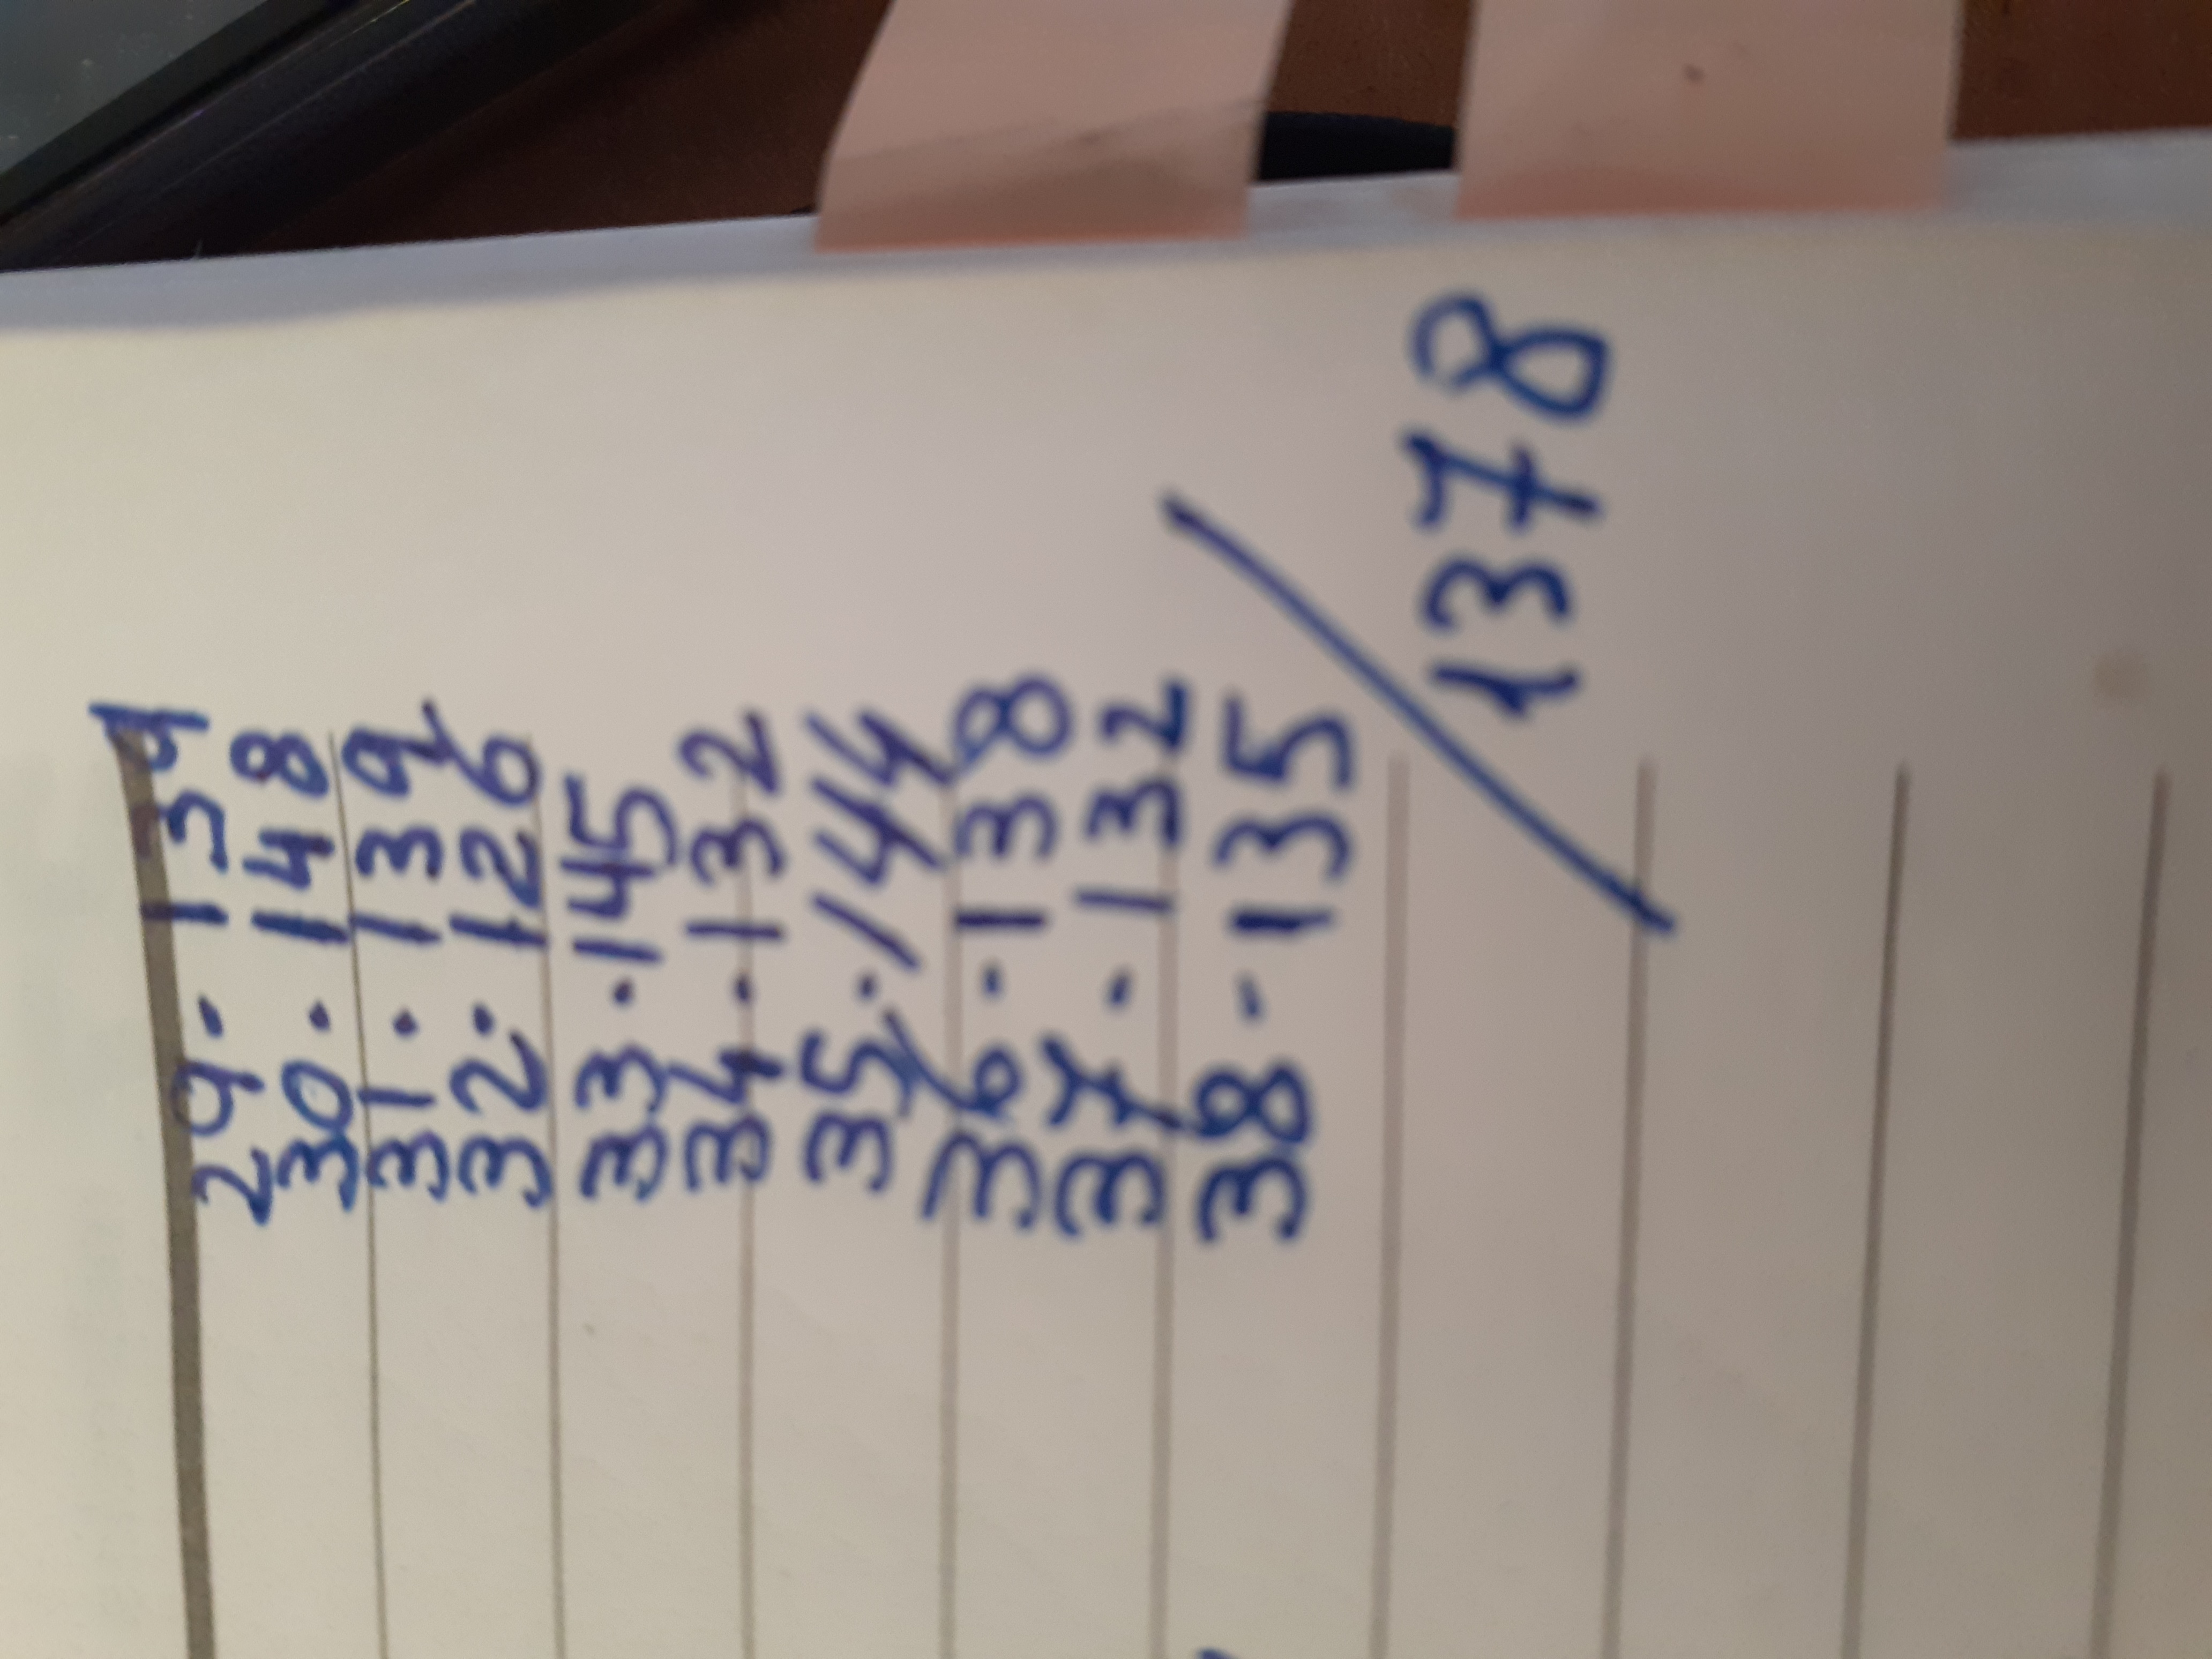 29 - 139
30 . 148
31 . 139
32 . 126
33 . 145
34 . 132
35 . 144
36 - 138
37 - 132
38 - 135
1378